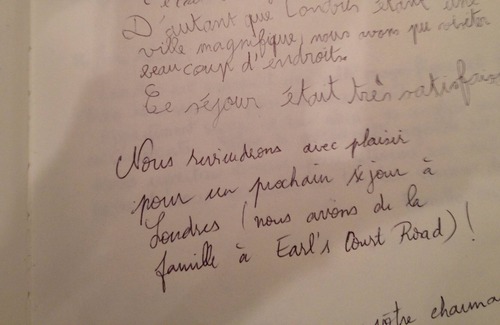 D'autant que Londres étant une
ville magnifique, nous avons pu visiter
beaucoup d'endroits.
Ce séjour était très satisfais
Nous reviendrons avec plaisir
pour un prochain séjour à
Londres (nous avons de la
famille à Earl's Court Road) !
votre charma